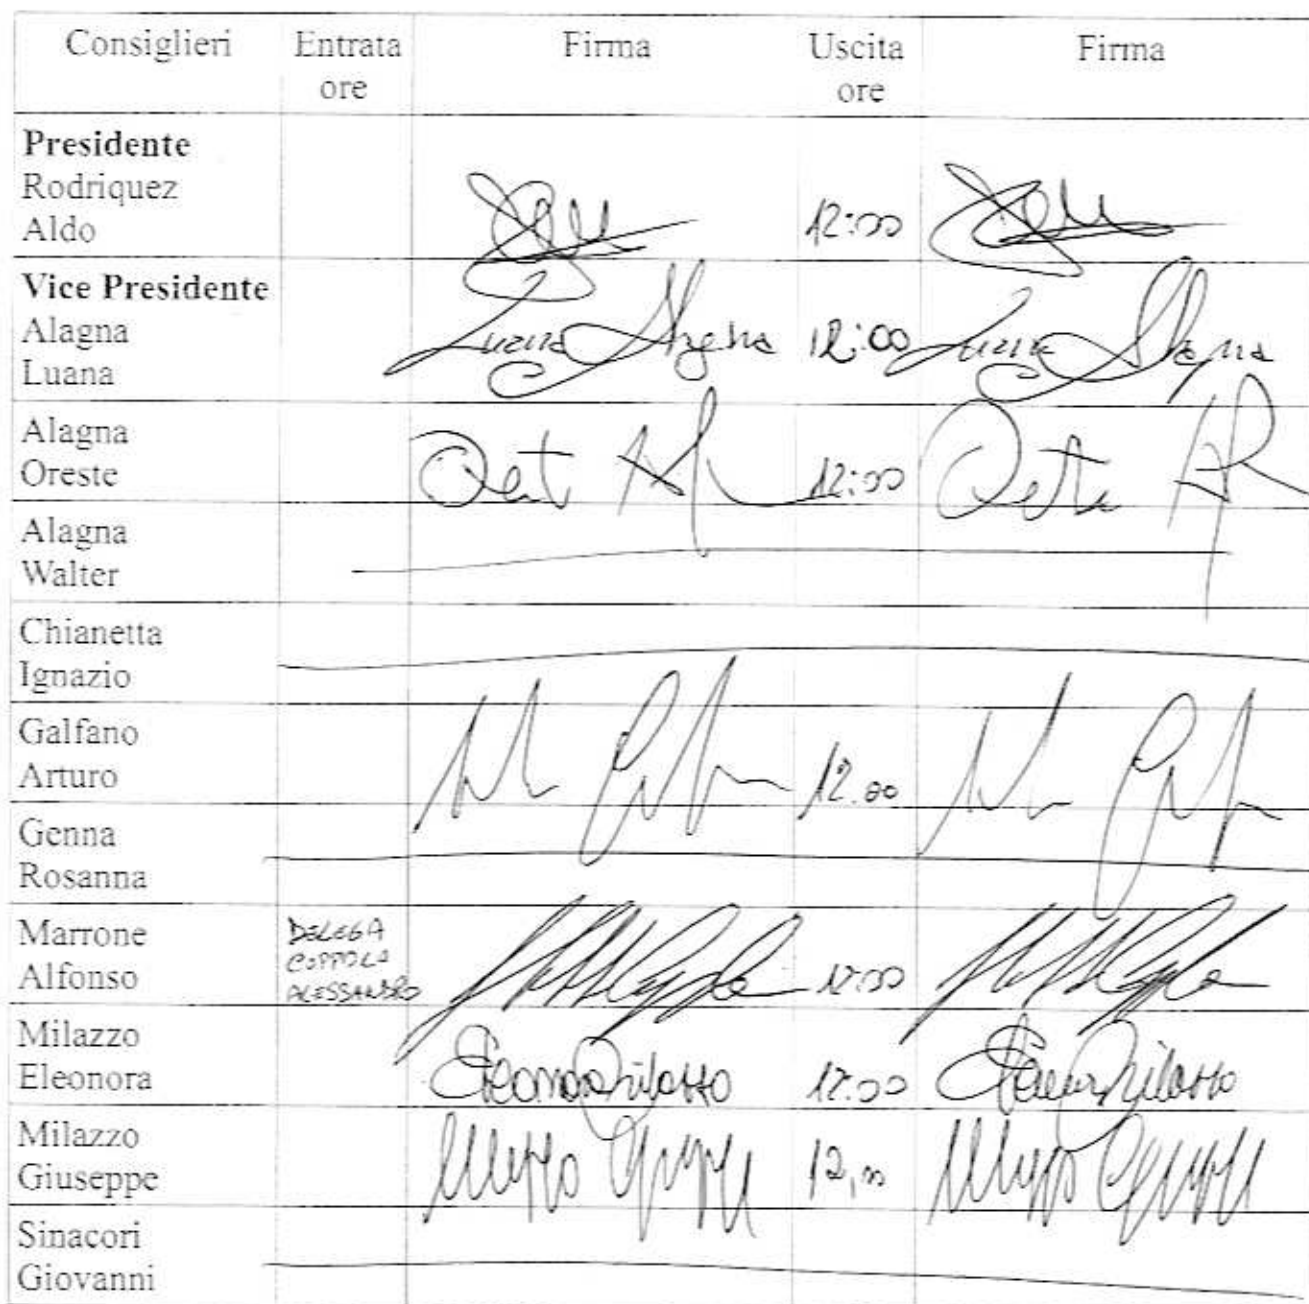 Consiglieri Entrata ore Firma Uscita ore Firma
Presidente
Rodriquez
Aldo 12:00
Vice Presidente
Alagna
Luana Luana Alagna 12:00 Luana Alagna
Alagna
Oreste 12:00
Alagna
Walter
Chianetta
Ignazio
Galfano
Arturo 12.00
Genna
Rosanna
Marrone
Alfonso DELEGA
COPPOLA
ALESSANDRO 12:00
Milazzo
Eleonora Eleonora Milazzo 12:00 Eleonora Milazzo
Milazzo
Giuseppe 12,00
Sinacori
Giovanni